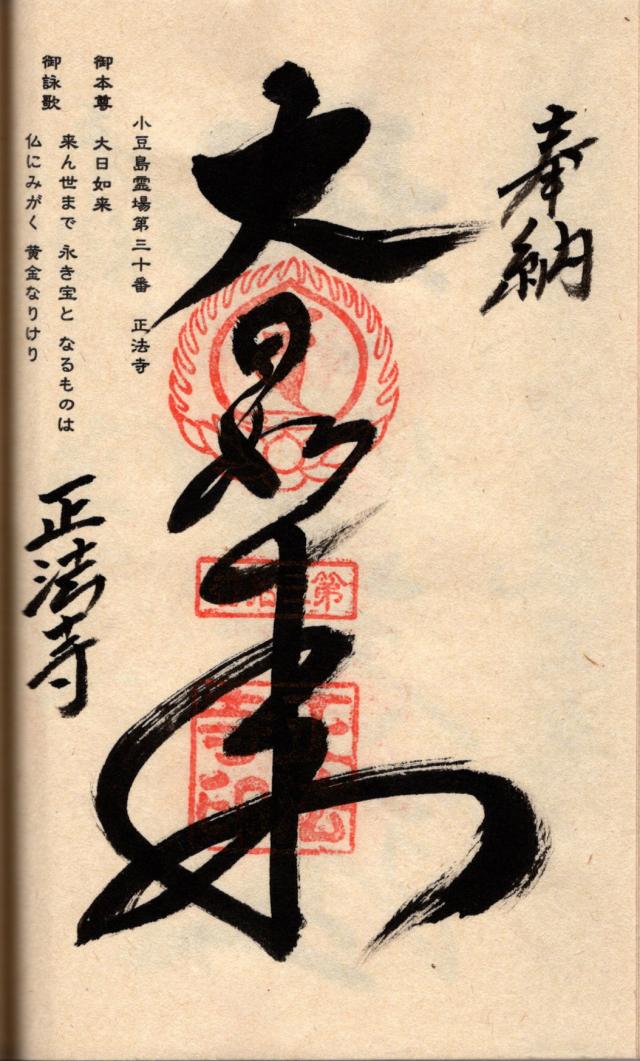 奉納
大日如来
小豆島霊場第三十番 正法寺
御本尊 大日如来
御詠歌
来ん世まで 永き宝と なるものは
仏にみがく 黄金なりけり
正法寺
第三拾番
正法寺印